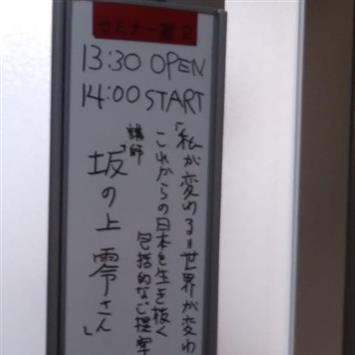 セミナー室2
13:30 OPEN
14:00 START
「私が変わる=世界が変わ
これからの日本を生き抜く
包括的なご提案
講師
坂の上 零さん」